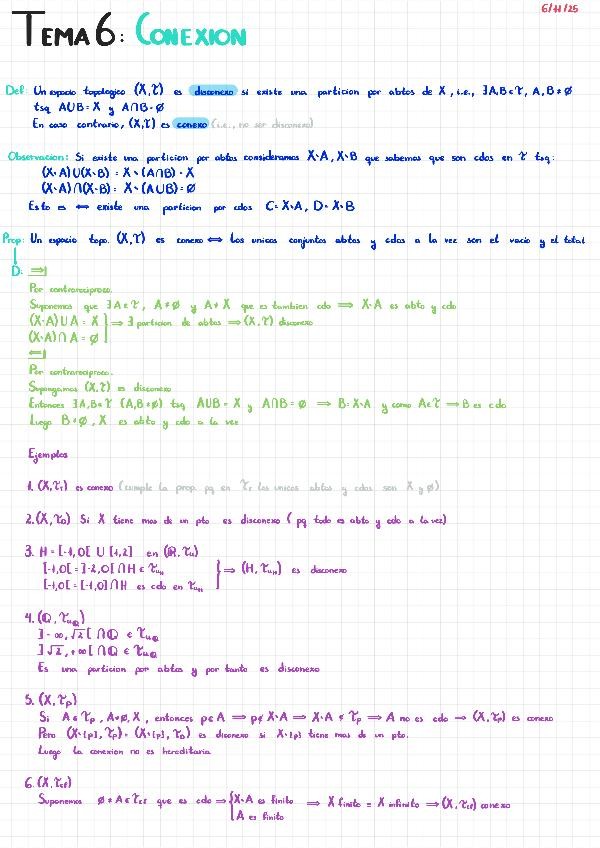 6/11/25
TEMA 6: CONEXION
Def: Un espacio topologico (X,τ) es disconexo si existe una particion por abtos de X, i.e., ∃A,B∈τ, A,B≠∅
tsq A∪B=X y A∩B=∅
En caso contrario, (X,τ) es conexo (i.e., no ser disconexo)
Observacion: Si existe una particion por abtos consideramos X\A, X\B que sabemos que son cdos en τ tsq:
(X\A)∪(X\B) = X\(A∩B) = X
(X\A)∩(X\B) = X\(A∪B) = ∅
Esto es ⟺ existe una particion por cdos C=X\A, D=X\B
Prop: Un espacio topo. (X,τ) es conexo ⟺ los unicos conjuntos abtos y cdos a la vez son el vacio y el total
D: ⟹
Por contrareciproco.
Suponemos que ∃A∈τ, A≠∅ y A≠X que es tambien cdo ⟹ X\A es abto y cdo
(X\A)∪A = X } ⟹ ∃ particion de abtos ⟹ (X,τ) disconexo
(X\A)∩A = ∅
⟸
Por contrareciproco.
Supongamos (X,τ) es disconexo
Entonces ∃A,B∈τ (A,B≠∅) tsq A∪B=X y A∩B=∅ ⟹ B=X\A y como A∈τ ⟹ B es cdo
Luego B≠∅,X es abto y cdo a la vez
Ejemplos
1. (X,τ_T) es conexo (cumple la prop. pq en τ_T los unicos abtos y cdos son X y ∅)
2. (X,τ_D) Si X tiene mas de un pto es disconexo (pq todo es abto y cdo a la vez)
3. H = [-1,0[ ∪ [1,2] en (ℝ,τ_u)
[-1,0[ = ]-2,0[∩H ∈ τ_uH } ⟹ (H,τ_uH) es disconexo
[-1,0[ = [-1,0]∩H es cdo en τ_uH
4. (ℚ,τ_uℚ)
]-∞,√2[ ∩ℚ ∈ τ_uℚ
]√2,+∞[ ∩ℚ ∈ τ_uℚ
Es una particion por abtos y por tanto es disconexo
5. (X,τ_p)
Si A∈τ_p, A≠∅,X, entonces p∈A ⟹ p∉X\A ⟹ X\A ∉ τ_p ⟹ A no es cdo ⟹ (X,τ_p) es conexo
Pero (X\{p},τ_p) = (X\{p},τ_D) es disconexo si X\{p} tiene mas de un pto.
Luego la conexion no es hereditaria
6. (X,τ_CF)
Suponemos ∅≠A∈τ_CF que es cdo ⟹ { X\A es finito ⟹ X finito = X infinito ⟹ (X,τ_CF) conexo
A es finito